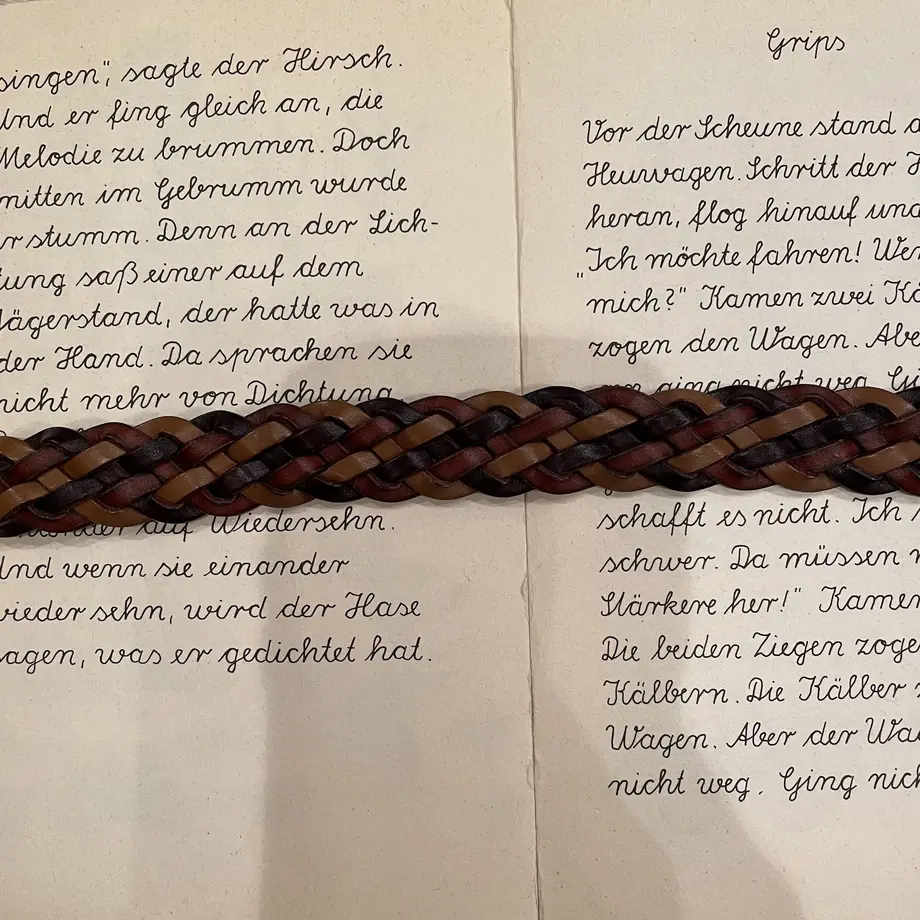 singen", sagte der Hirsch.
Und er fing gleich an, die
Melodie zu brummen. Doch
mitten im Gebrumm wurde
er stumm. Denn an der Lich-
tung saß einer auf dem
Jägerstand, der hatte was in
der Hand. Da sprachen sie
nicht mehr von Dichtung
auf Wiedersehn.
Und wenn sie einander
wieder sehn, wird der Hase
sagen, was er gedichtet hat.
Grips
Vor der Scheune stand
Heuwagen. Schritt der
heran, flog hinauf und
„Ich möchte fahren! Wer
mich?" Kamen zwei
zogen den Wagen. Aber
ging nicht weg.
schafft es nicht. Ich
schwer. Da müssen
Stärkere her!" Kamen
Die beiden Ziegen
Kälbern. Die Kälber
Wagen. Aber der
nicht weg. Ging